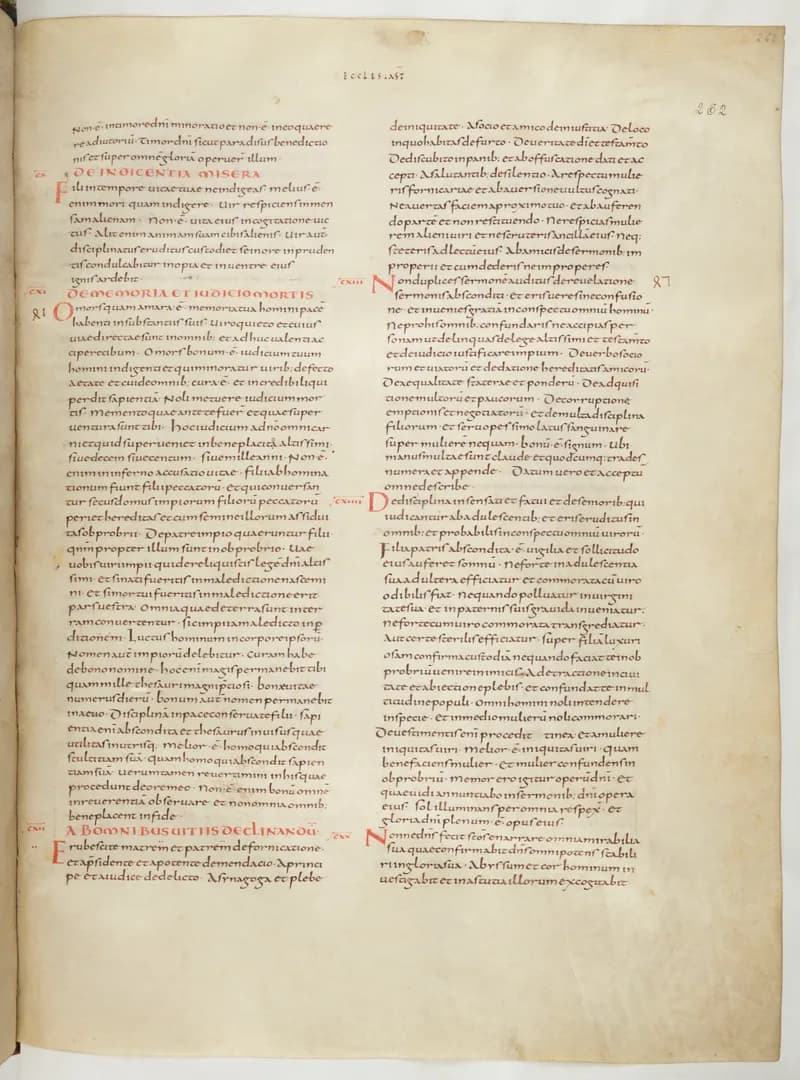 ECCLESIAST
262
Non · ē · in timore dn̄i minoratio et non · ē · in eo quaere
re adiutoriū · Timor dn̄i sicut paradisus benedictio
nis et super omnē gloriā operuer illum ·
cx DE INDIGENTIA MISERA
Fili in tempore uitae tuae ne indigeas melius · ē ·
enim mori quam indigere · Uir respiciens in men
sam alienam · Non · ē · uita eius in cogitatione uic
tus · Alit enim animam suam cibis alienis · Uir aut̄
disciplinatus et eruditus custodiet se in ore inpruden
tis condulcabitur inopia et in uentre eius
ignis ardebit ·
cxi DE MEMORIA ET IUDICIO MORTIS
O mors quam amara · ē · memoria tua homini pacē
habenti in substantiis suis · Uiro quieto et cuius
uiae directae sunt in omnib; et adhuc ualenti ac
cipere cibum · O mors bonum · ē · iudicium tuum
homini indigenti et qui minoratur uirib; defecto
aetate et cui de omnib; cura · ē · et incredibili qui
perdit sapientiā · Noli metuere iudicium mor
tis memento quae ante te fuer et quae super
uentura sunt tibi · Hoc iudicium a dn̄o omni car
ni et quid superueniet in beneplacita altissimi ·
siue decem siue centum · siue mille anni · Non · ē ·
enim in inferno accusatio uitae · filii abhomina
tionum fiunt filii peccatorū · et qui conuersan
tur secus domus impiorum filiorū peccatorū
periet hereditas et cum semine illorum assidui
tas obprobrii · De patre impio quaeruntur filii
qn̄m propter illum sunt in obprobrio · Uae
uobis uiri impii qui dereliquistis legē dn̄i altis
simi · et si nati fueritis in maledictione nascemi
ni · et si mortui fueritis in maledictione erit
pars uestra · Omnia quae de terra sunt in ter
ram conuertentur · sic impii a maledicto in p
ditionem · Luctus hominum in corpore ipsorū ·
Nomen aut̄ impiorū delebitur · Curam habe
de bono nomine · hoc enī magis permanebit tibi
quam mille thesauri magni p̄tiosi · bonae uitae
numerus dierū · bonum aut̄ nomen permanebit
in aeuo · Disciplinā in pace conseruate filii · sapi
entia enī abscondita et thesaurus inuisus quae
utilitas in utrisq; · Melior · ē · homo qui abscondit
stultitiam suā · quam homo qui abscondit sapien
tiam suā · uerumtamen reuertimini in his quae
procedunt de ore meo · Non · ē · enim bonū omnē
inreuerentia obseruare · et non omnia omnib;
beneplacent in fide ·
cxii AB OMNIBUS UITIIS DECLINANDŪ ·
Erubescite matrem et patrem de fornicatione ·
Et a p̄sidente et a potente de mendacio · A princi
pe et a iudice de delicto · A synagoga et plebe
de iniquitate · A socio et amico de iniustitia · De loco
in quo habitas de furto · De ueritate dī et testam̄to
De discubito in panib; et ab offuscatione dati et ac
cepti · A salutantib; de silentio · A respectu mulie
ris fornicariae et ab auersione uultus cognati ·
Ne auertas faciem a proximo tuo · et ab auferen
do parte et non restituendo · Ne respicias mulie
rem alieni uiri et ne scruteris ancillā eius neq;
steteris ad lectū eius · Ab amicis de sermonib; im
properii et cum dederis ne improperes
cxiii Non duplices sermonē auditus de reuelatione
sermonis absconditi · et eris uere sine confusio
ne · et inuenies gratiā in conspectu omniū hominū ·
Ne pro his omnib; confundaris ne accipias per
sonam ut delinquas de lege altissimi et testam̄to
et de iudicio iustificare impium · De uerbo socio
rum et uiatorū et de datione hereditatis amicorū ·
De aequalitate staterae et ponderū · De adquisi
tione multorū et paucorum · De corruptione
emptionis et negotiatorū · et de multa disciplina
filiorum · et seruo pessimo latus sanguinare
super mulierē nequam · bonū · ē · signum · Ubi
manus multae sunt claude et quodcumq; trades
numera et appende · Datum uero et acceptū
omne describe ·
cxiiii De disciplina insensati et fatui et de seniorib; qui
iudicantur ab adulescentib; et eris eruditus in
omnib; et probabilis in conspectu omniū uirorū ·
Filia patris abscondita · ē · uigilia et sollicitudo
eius auferet somnū · Ne forte in adulescentia
sua adultera efficiatur et commorata cū uiro
odibilis fiat · Ne quando polluatur in uirgini
tate sua · et in paternis suis grauida inueniatur;
ne forte cum uiro commorata transgrediatur ·
Aut certe sterilis efficiatur · super filiā luxuri
osam confirma custodiā ne quando faciat te in ob
probriū uenire inimicis · A detractione in ciui
tate et abiectione plebis · et confundat te in mul
titudine populi · Omni homini noli intendere
in specie · et in medio mulierū noli commorari ·
De uestimentis enī procedit tinea et a muliere
iniquitas uiri · Melior · ē · iniquitas uiri · quam
benefaciens mulier · Et mulier confundens in
obprobriū · Memor ero igitur operū dn̄i · Et
quae uidi annuntiabo in sermonib; dn̄i opera
eius · sol illuminans per omnia respex̄ · Et
gloria dn̄i plenum · ē · opus eius
cxv Nonne dn̄s fecit sc̄os enarrare omnia mirabilia
sua quae confirmabit dn̄s omnipotens stabili
ri in gloria sua · Abyssum et cor hominum in
uestigabit et in astutia illorum excogitabit